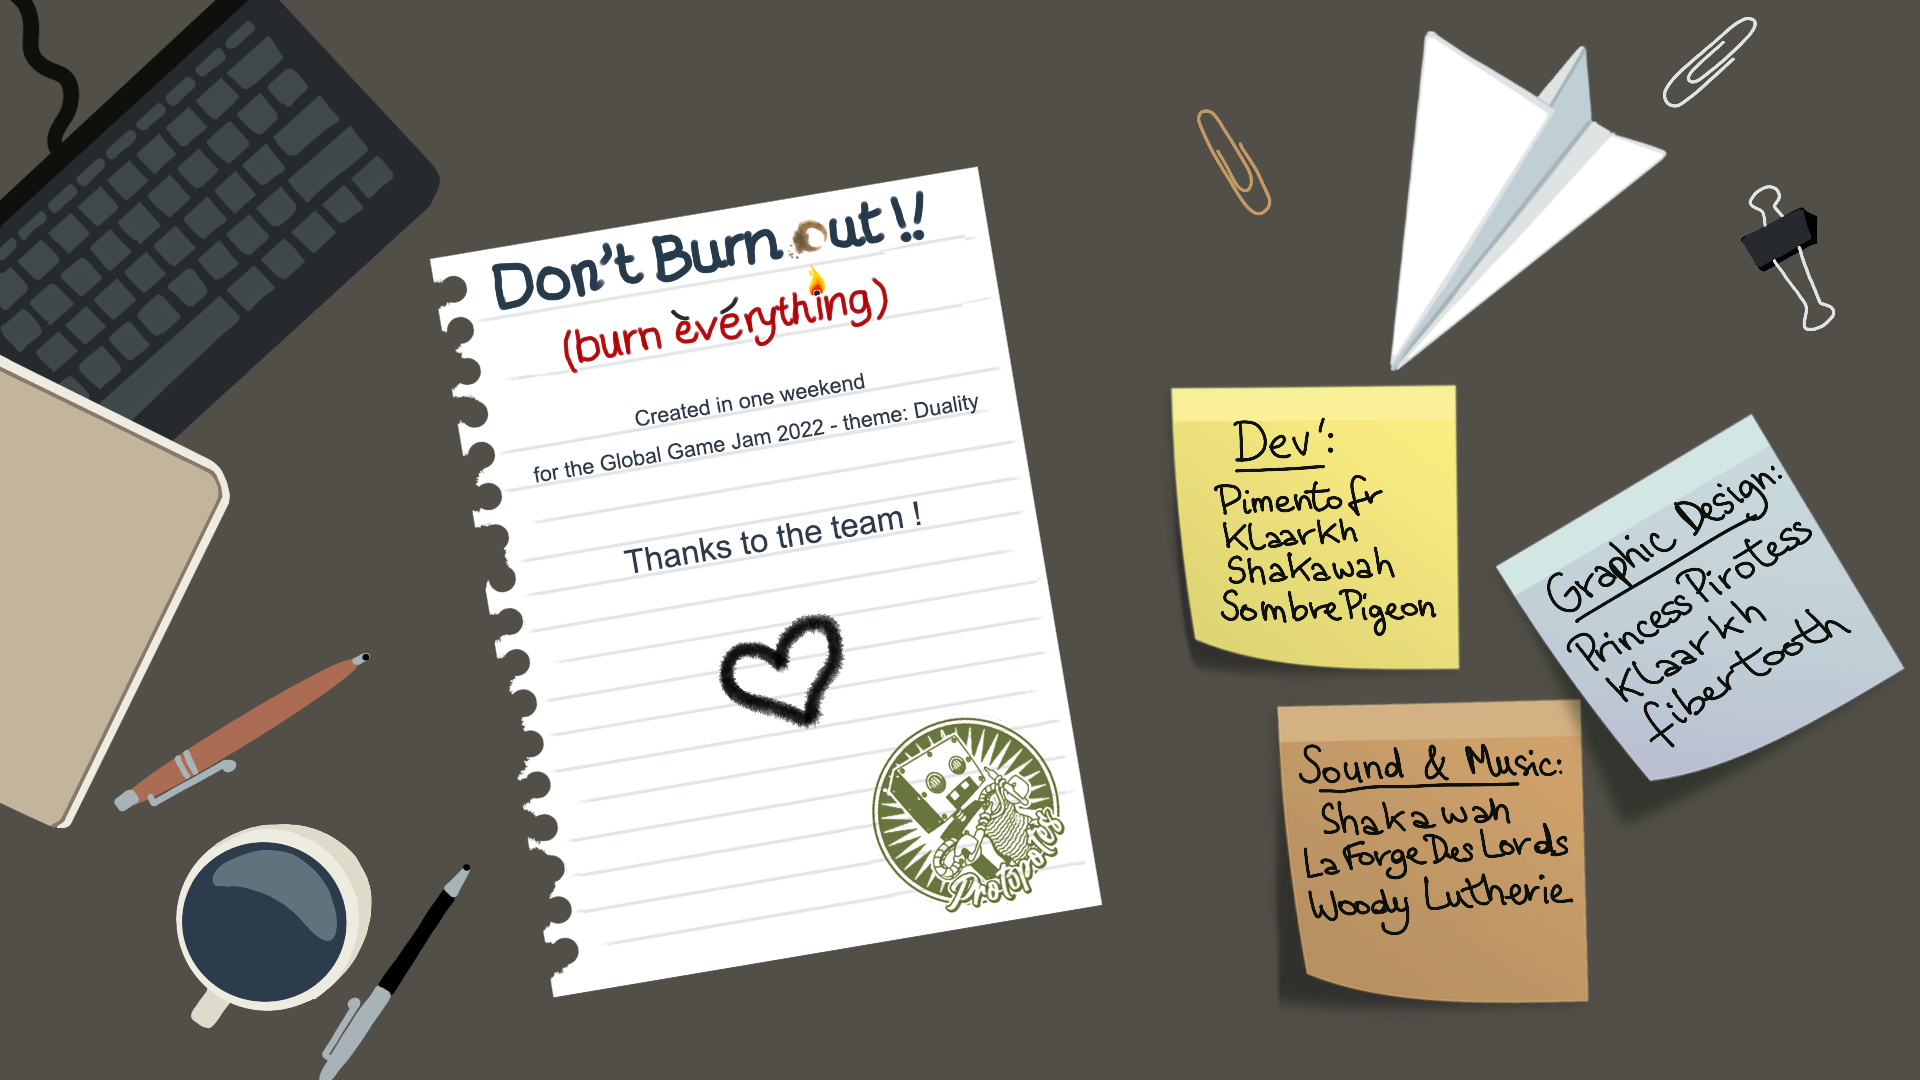 Don't Burn out !!
(burn everything)
Created in one weekend
for the Global Game Jam 2022 - theme: Duality
Thanks to the team !
Protopotes
Dev':
Pimentofr
Klaarkh
Shakawah
SombrePigeon
Graphic Design:
PrincessPirotess
Klaarkh
fibertooth
Sound & Music:
Shakawah
LaForgeDesLords
Woody Lutherie